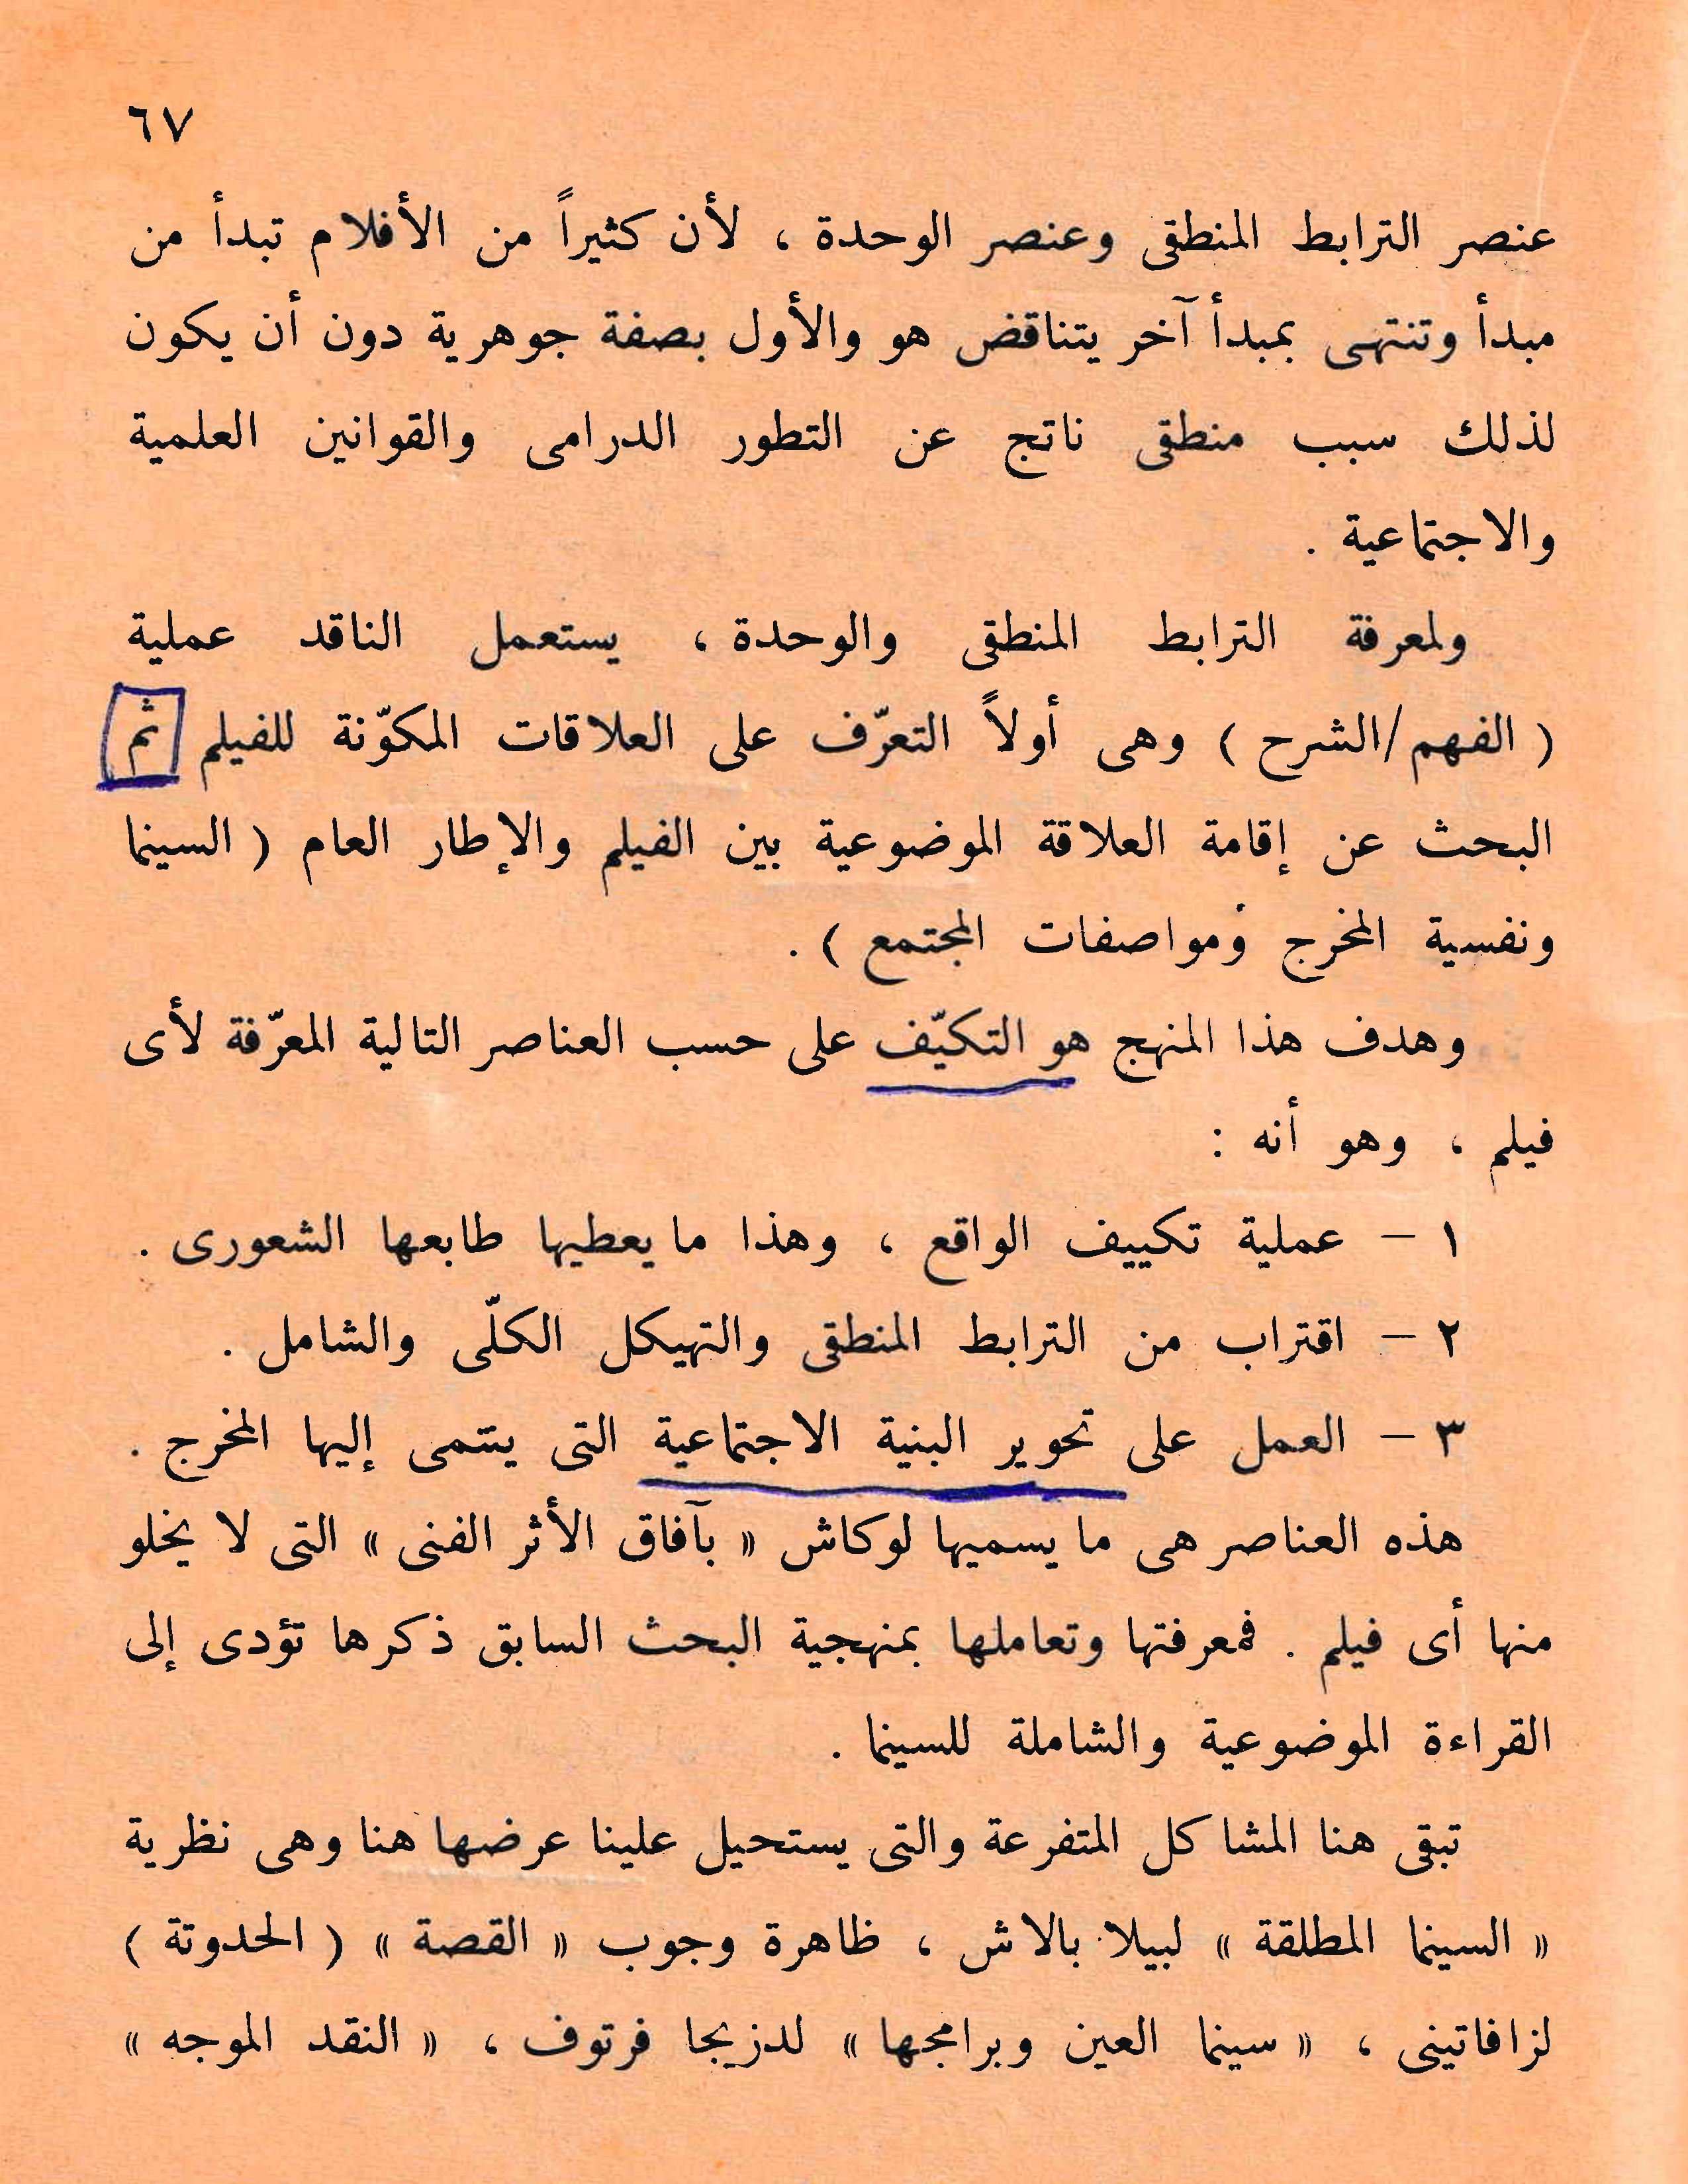 ٦٧
عنصر الترابط المنطقى وعنصر الوحدة ، لأن كثيراً من الأفلام تبدأ من
مبدأ وتنتهى بمبدأ آخر يتناقض هو والأول بصفة جوهرية دون أن يكون
لذلك سبب منطقى ناتج عن التطور الدرامى والقوانين العلمية
والاجتماعية .
ولمعرفة الترابط المنطقى والوحدة ، يستعمل الناقد عملية
( الفهم/الشرح ) وهى أولاً التعرّف على العلاقات المكوّنة للفيلم ثم
البحث عن إقامة العلاقة الموضوعية بين الفيلم والإطار العام ( السينما
ونفسية المخرج ومواصفات المجتمع ) .
وهدف هذا المنهج هو التكيّف على حسب العناصر التالية المعرّفة لأى
فيلم ، وهو أنه :
١ – عملية تكييف الواقع ، وهذا ما يعطيها طابعها الشعورى .
٢ – اقتراب من الترابط المنطقى والتهيكل الكلّى والشامل .
٣ – العمل على تحوير البنية الاجتماعية التى ينتمى إليها المخرج .
هذه العناصر هى ما يسميها لوكاش « بآفاق الأثر الفنى » التى لا يخلو
منها أى فيلم . فمعرفتها وتعاملها بمنهجية البحث السابق ذكرها تؤدى إلى
القراءة الموضوعية والشاملة للسينما .
تبقى هنا المشاكل المتفرعة والتى يستحيل علينا عرضها هنا وهى نظرية
« السينما المطلقة » لبيلا بالاش ، ظاهرة وجوب « القصة » ( الحدوتة )
لزافاتينى ، « سينما العين وبرامجها » لدزيجا فرتوف ، « النقد الموجه »